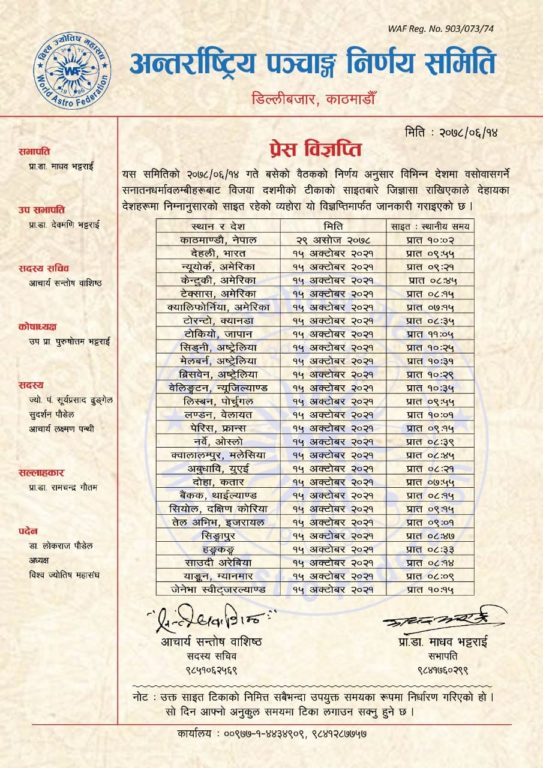 WAF Reg. No. 903/073/74
विश्व ज्योतिष महासंघ
WAF
World Astro Federation
अन्तर्राष्ट्रिय पञ्चाङ्ग निर्णय समिति
डिल्लीबजार, काठमाडौँ
मिति : २०७८/०६/१४
प्रेस विज्ञप्ति
यस समितिको २०७८/०६/१४ गते बसेको वैठकको निर्णय अनुसार विभिन्न देशमा वसोवासगर्ने
सनातनधर्मावलम्बीहरूबाट विजया दशमीको टीकाको साइतबारे जिज्ञासा राखिएकाले देहायका
देशहरूमा निम्नानुसारको साइत रहेको व्यहोरा यो विज्ञप्तिमार्फत जानकारी गराइएको छ ।
सभापति
प्रा.डा. माधव भट्टराई
उप सभापति
प्रा.डा. देवमणि भट्टराई
सदस्य सचिव
आचार्य सन्तोष वाशिष्ठ
कोषाध्यक्ष
उप प्रा. पुरुषोतम भट्टराई
सदस्य
ज्यो. पं. सूर्यप्रसाद ढुङ्गेल
सुदर्शन पौडेल
आचार्य लक्ष्मण पन्थी
सल्लाहकार
प्रा.डा. रामचन्द्र गौतम
पदेन
डा. लोकराज पौडेल
अध्यक्ष
विश्व ज्योतिष महासंघ
स्थान र देश मिति साइत : स्थानीय समय
काठमाण्डौ, नेपाल २९ असोज २०७८ प्रात १०:०२
देहली, भारत १५ अक्टोबर २०२१ प्रात ०९:५५
न्यूयोर्क, अमेरिका १५ अक्टोबर २०२१ प्रात ०९:२१
केन्टुकी, अमेरिका १५ अक्टोबर २०२१ प्रात ०८:४५
टेक्सास, अमेरिका १५ अक्टोबर २०२१ प्रात ०८:१५
क्यालिफोर्निया, अमेरिका १५ अक्टोबर २०२१ प्रात ०७:१५
टोरन्टो, क्यानडा १५ अक्टोबर २०२१ प्रात ०८:३५
टोकियो, जापान १५ अक्टोबर २०२१ प्रात ११:०५
सिड्नी, अष्ट्रेलिया १५ अक्टोबर २०२१ प्रात १०:२५
मेलबर्न, अष्ट्रेलिया १५ अक्टोबर २०२१ प्रात १०:३१
ब्रिसवेन, अष्ट्रेलिया १५ अक्टोबर २०२१ प्रात १०:२९
वेलिङ्टन, न्यूजिल्याण्ड १५ अक्टोबर २०२१ प्रात १०:३५
लिस्बन, पोर्चुगल १५ अक्टोबर २०२१ प्रात ०९:५५
लण्डन, वेलायत १५ अक्टोबर २०२१ प्रात १०:०१
पेरिस, फ्रान्स १५ अक्टोबर २०२१ प्रात ०९:१५
नर्वे, ओस्लो १५ अक्टोबर २०२१ प्रात ०८:३९
क्वालालम्पुर, मलेसिया १५ अक्टोबर २०२१ प्रात ०८:४५
अबुधावि, युएई १५ अक्टोबर २०२१ प्रात ०८:२१
दोहा, कतार १५ अक्टोबर २०२१ प्रात ०७:५५
बैंकक, थाईल्याण्ड १५ अक्टोबर २०२१ प्रात ०८:१५
सियोल, दक्षिण कोरिया १५ अक्टोबर २०२१ प्रात ०९:१५
तेल अभिभ, इजरायल १५ अक्टोबर २०२१ प्रात ०९:०१
सिङ्गापुर १५ अक्टोबर २०२१ प्रात ०८:४७
हङ्कङ्ग १५ अक्टोबर २०२१ प्रात ०८:३३
साउदी अरेबिया १५ अक्टोबर २०२१ प्रात ०८:१४
याङ्गुन, म्यानमार १५ अक्टोबर २०२१ प्रात ०८:०९
जेनेभा स्वीट्जरल्याण्ड १५ अक्टोबर २०२१ प्रात १०:१५
आचार्य सन्तोष वाशिष्ठ
सदस्य सचिव
९८५१०६२५६९
प्रा.डा. माधव भट्टराई
सभापति
९८४१७६०२९९
नोट : उक्त साइत टिकाको निमित्त सबैभन्दा उपयुक्त समयका रूपमा निर्धारण गरिएको हो ।
सो दिन आफ्नो अनुकुल समयमा टिका लगाउन सक्नु हुने छ ।
कार्यालय : ००९७७-१-४४३४९०९, ९८४१२८७७५७